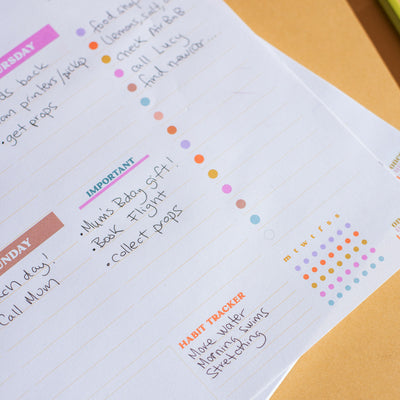 URSDAY
ds back
printers/pickup
• get props
food shop
(lemons, salt,
check AirBnB
call Lucy
find
IMPORTANT
• Mum's Bday gift!
• Book Flight
• collect props
NDAY
ch day!
Call Mum
HABIT TRACKER
m t w t f s s
More water
Morning swims
Stretching